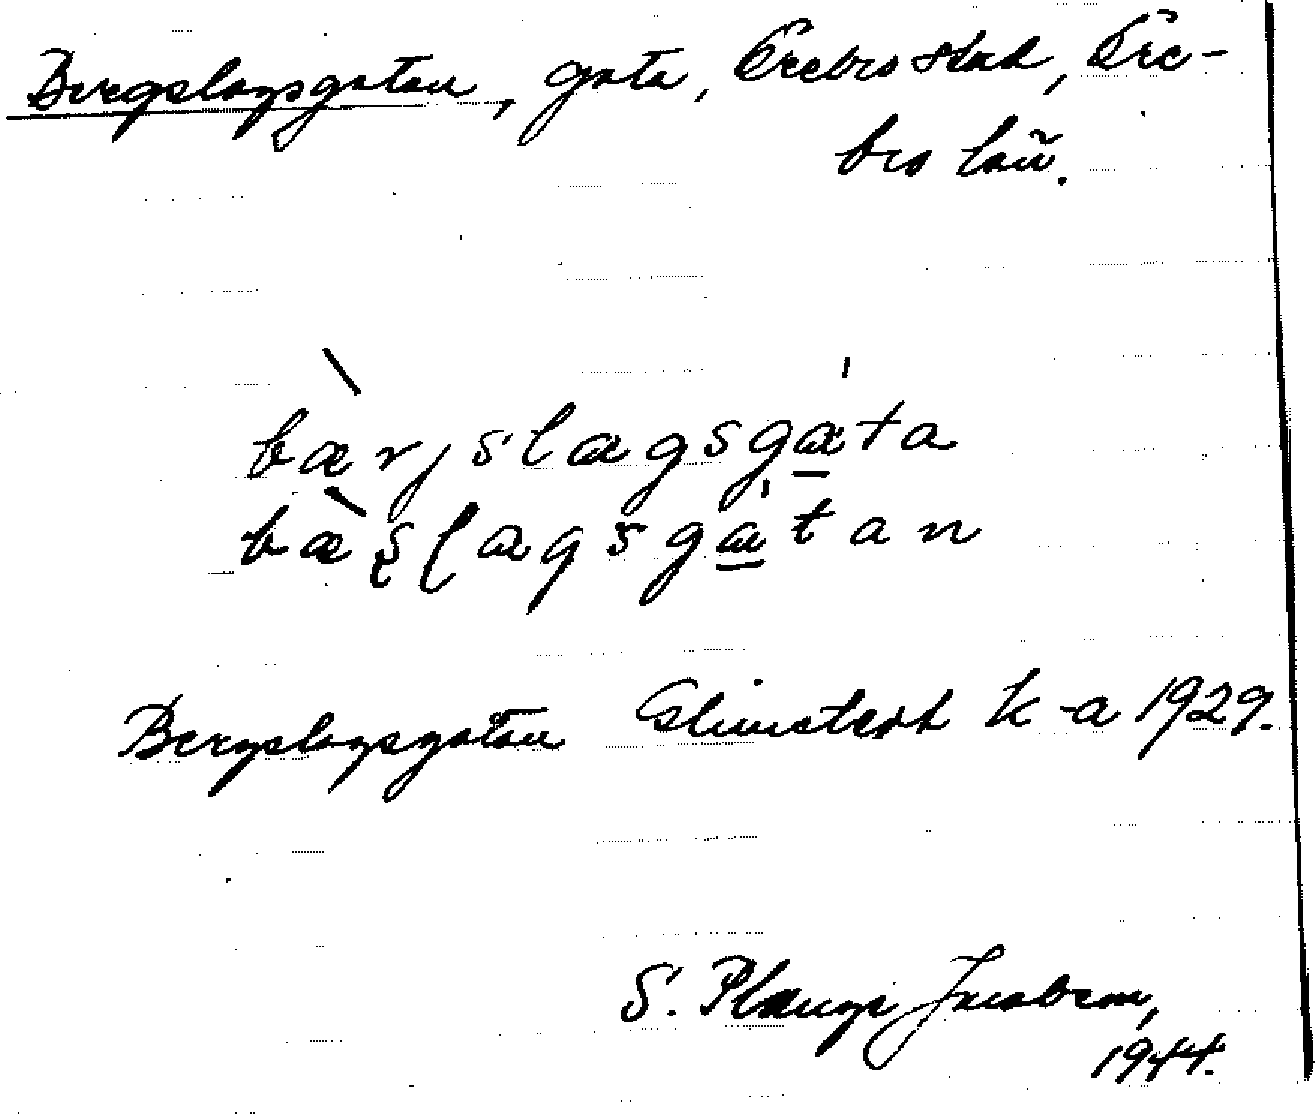 Bergslagsgatan, gata, Örebro stad, Öre-
bro län.
bærjslagsgata
bæʂɭagsgatan
Bergslagsgatan Elmstedt k-a 1929.
S. Plauge Jacobson,
1944.